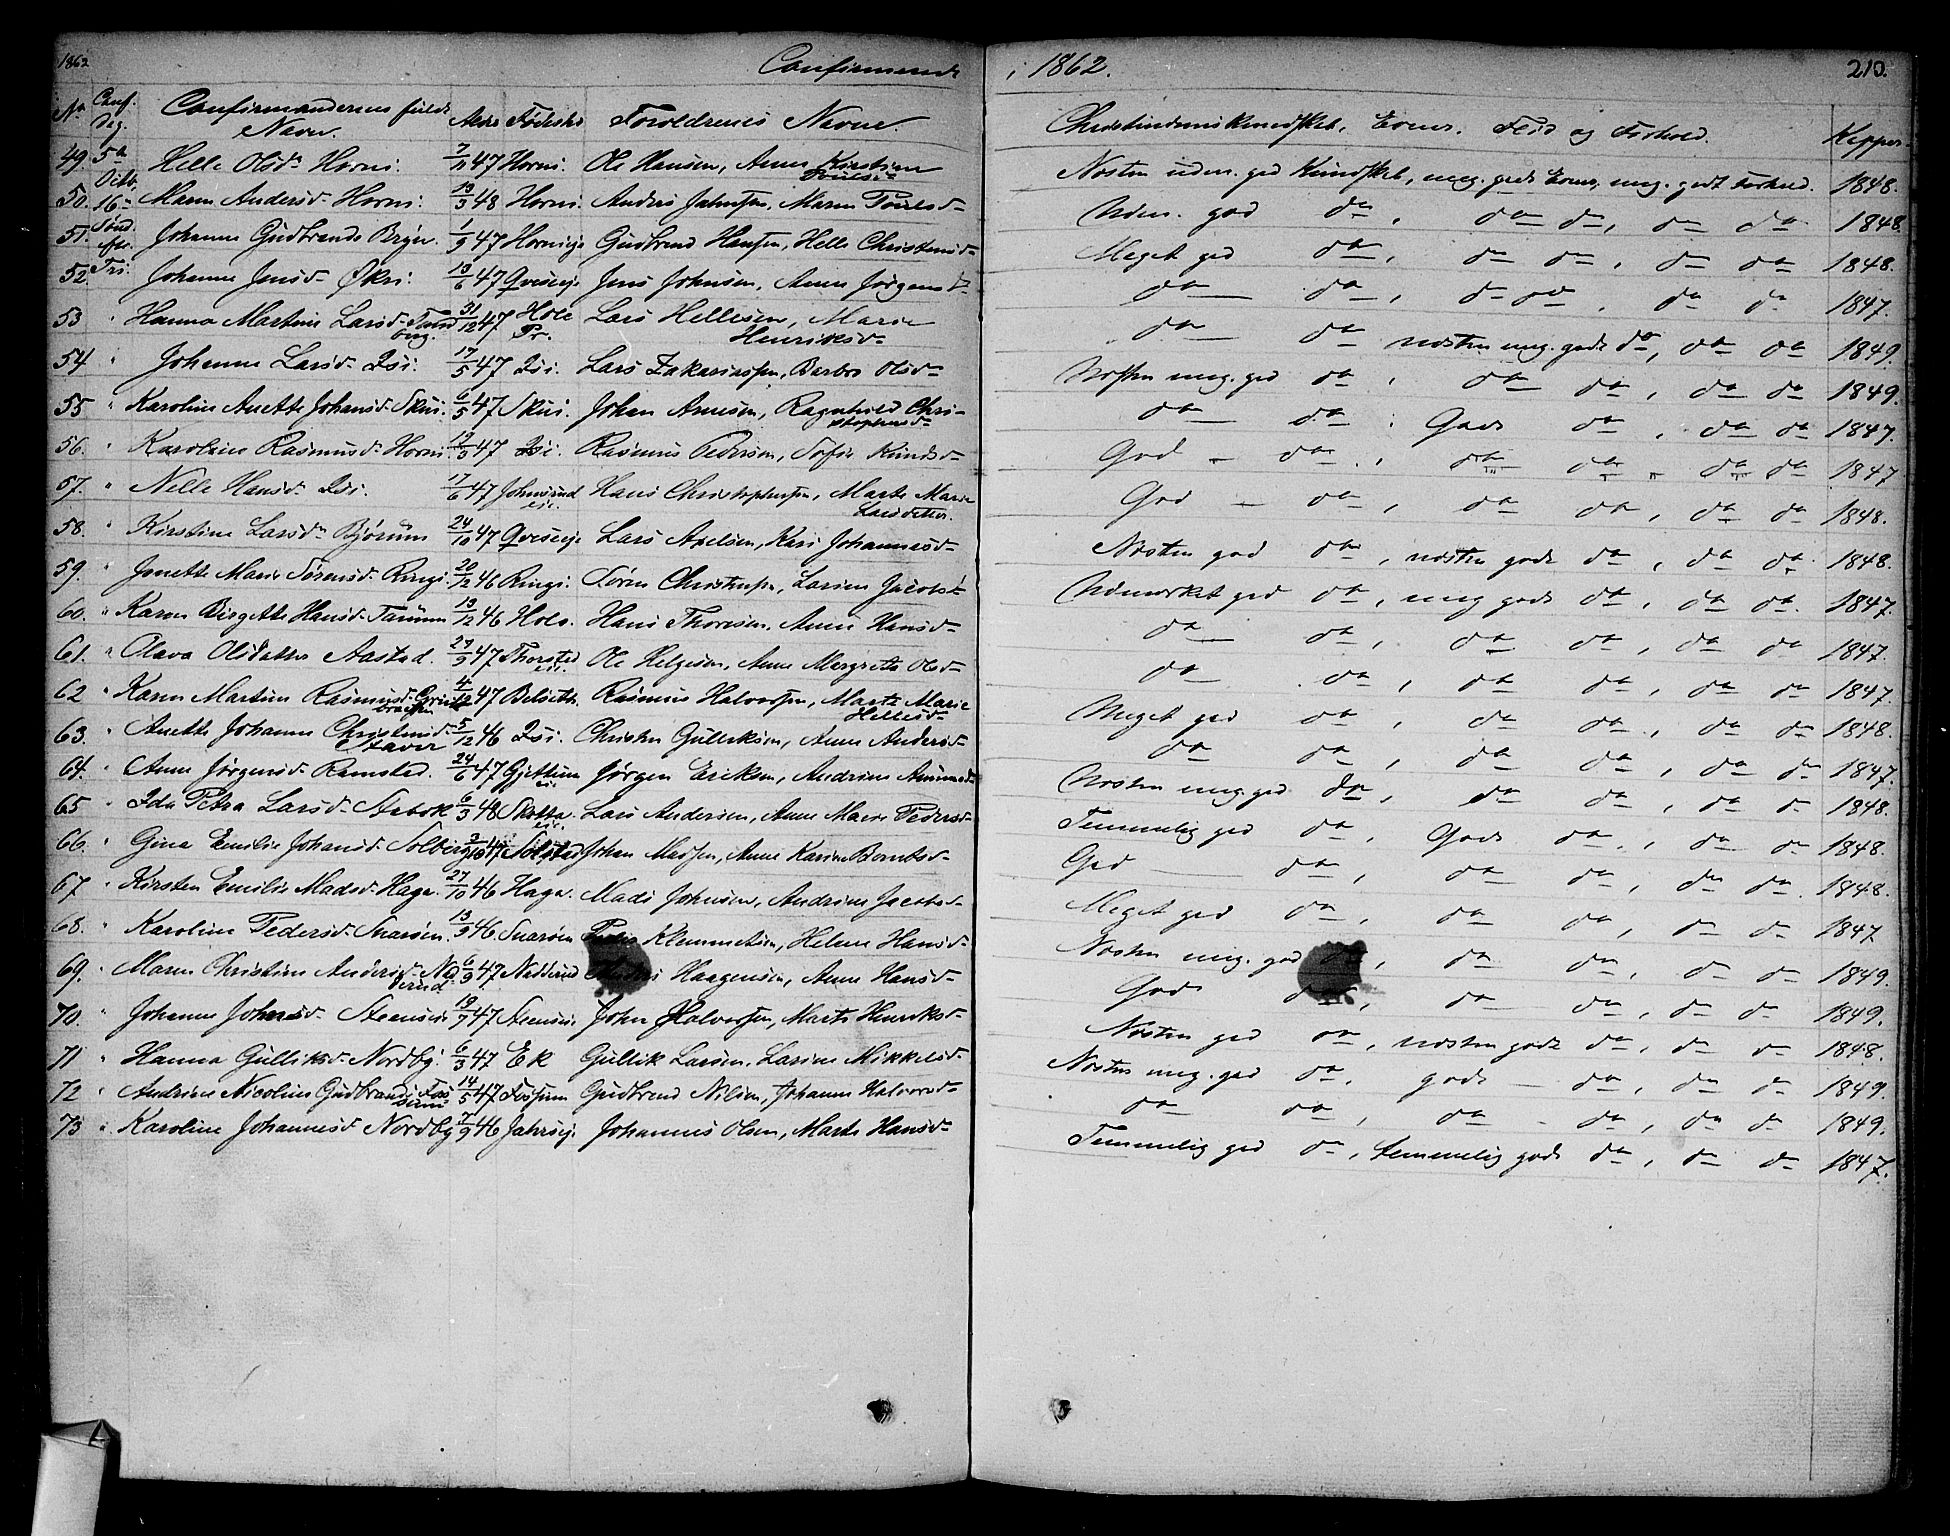 1862 Confirmerede i 1862. 210.
No Conf. Dag. Confirmandernes fulde Navn. Alder Fødested Forældrenes Navne. Christendomskundskab, Evner, Flid og Forhold. Kopper
49. 5te Octb. Helle Olsdr Horni. 7/11 47 Horni. Ole Hansen, Anne Kirstine Poulsd. Næsten udm. god Kundskab, meg. gode Evner, meg. godt Forhold. 1848.
50. 16de Maren Andersd. Horni. 13/3 48 Horni. Anders Jahnsen, Maren Poulsd. Udm. god do, do do, do do 1848.
51. Sønd. efter Johanne Gudbrands Bryn. 1/9 47 Hornieje Gudbrand Hansen, Helle Christensd. Meget god do, do do, do do 1848.
52. Tri. Johanne Jensd. Økri. 13/6 47 Qviseeje Jens Johnsen, Anne Jørgensd. do do, do do, do do 1847.
53 " Hanna Martine Larsd. 31/12 47 Hole Pr. Lars Hellesen, Marie Henriksd. do do næsten meg. gode do, do do 1849.
54 " Johanne Larsd. Isi. 17/5 47 Isi. Lars Zakariassen, Barbro Olsd. Næsten meg. god do, do do, do do 1849.
55 " Karoline Anette Johansd. Skui. 6/5 47 Skui. Johan Arnesen, Ragnhild Christophersd. do do, Gode do, do do 1847.
56. " Karoline Rasmusd. Horni 12/9 47 Isi. Rasmus Pedersen, Sofie Knudsd. God do, do do do do 1847
57. " Nelle Hansd. Isi. 17/6 47 Johnsrud eie. Hans Christophersen, Marte Marie Larsdatter. God do, do do, do do 1848.
58. " Kirstine Larsd. Bjørum 24/10 47 Qviseeje Lars Axelsen, Kari Johannesd. Næsten god do, næsten gode do, do do 1848.
59. " Jonette Marie Sørensd. Ringi. 20/12 46 Ringi. Søren Christensen, Larine Jacobsd. Udmærket god do, meg gode do, do do. 1847.
60. " Karen Birgitte Hansd. Tanum 13/12 46 Holo. Hans Thoresen, Anne Hansd. do do, do do, do do 1847.
61. " Olava Olsdatter Aastad. 27/9 47 Thorsted eie. Ole Helgesen, Anne Margrethe Olsd. do do, do do, do do 1847.
62 " Karen Martine Rasmusd. 4/12 47 Belseth. Rasmus Halvorsen, Marte Marie Hellesd. Meget god do, do do, do do 1848.
63. " Anette Johanne Christensd. Staver 5/12 46 Isi. Christen Gulliksen, Anne Andersd. do do, do do, do do 1847.
64. " Anne Jørgensd. Ramstad. 24/6 47 Gjettum ei. Jørgen Eriksen, Andrine Amundsd. Næsten meg. god do, do do, do do 1848.
65 " Ida Petra Larsd. Stabæk 6/3 48 Skotta eie. Lars Andersen, Anne Marie Pedersd. Temmelig god do, Gode do, do do 1848.
66. " Gina Emilie Johansd. Solberg 3/10 47 Solstad Johan Madsen, Anne Karine Berntsd. God do, do do, do do. 1848.
67 " Kirsten Emilie Madsd. Haga. 27/10 46 Haga. Mads Johnsen, Andrine Jacobsd. Meget god do, do do, do do 1847
68. " Karoline Pedersd. Snarøen. 13/9 46 Snarøen Peder Klemmetsen, Helene Hansd. Næsten meg. god do, do do, do do 1849.
69. " Maren Christine Andersd. Nadderud 6/9 47 Nadderud Anders Haagensen, Anne Hansd. God do, do do, do do 1849.
70. " Johanne Johnsd. Steensei 19/9 47 Steensei. John Halvorsen, Marte Henriksd. Næsten god do, næsten gode do, do do 1848.
71 " Hanna Gulliksd. Nordby. 6/3 47 Ek Gullik Larsen, Larine Mikkelsd. Næsten meg. god do, gode do, do do 1849.
72 " Andrine Nicoline Gudbrandsd. Fossum 14/5 47 Fossum Gudbrand Nilsen, Johanne Halvorsd. do do, do do, do do 1849.
73 " Karoline Johannesd. Nordby 7/9 46 Jahrseje Johannes Olsen, Marte Hansd. Temmelig god do, temmelig gode do, do do 1847.